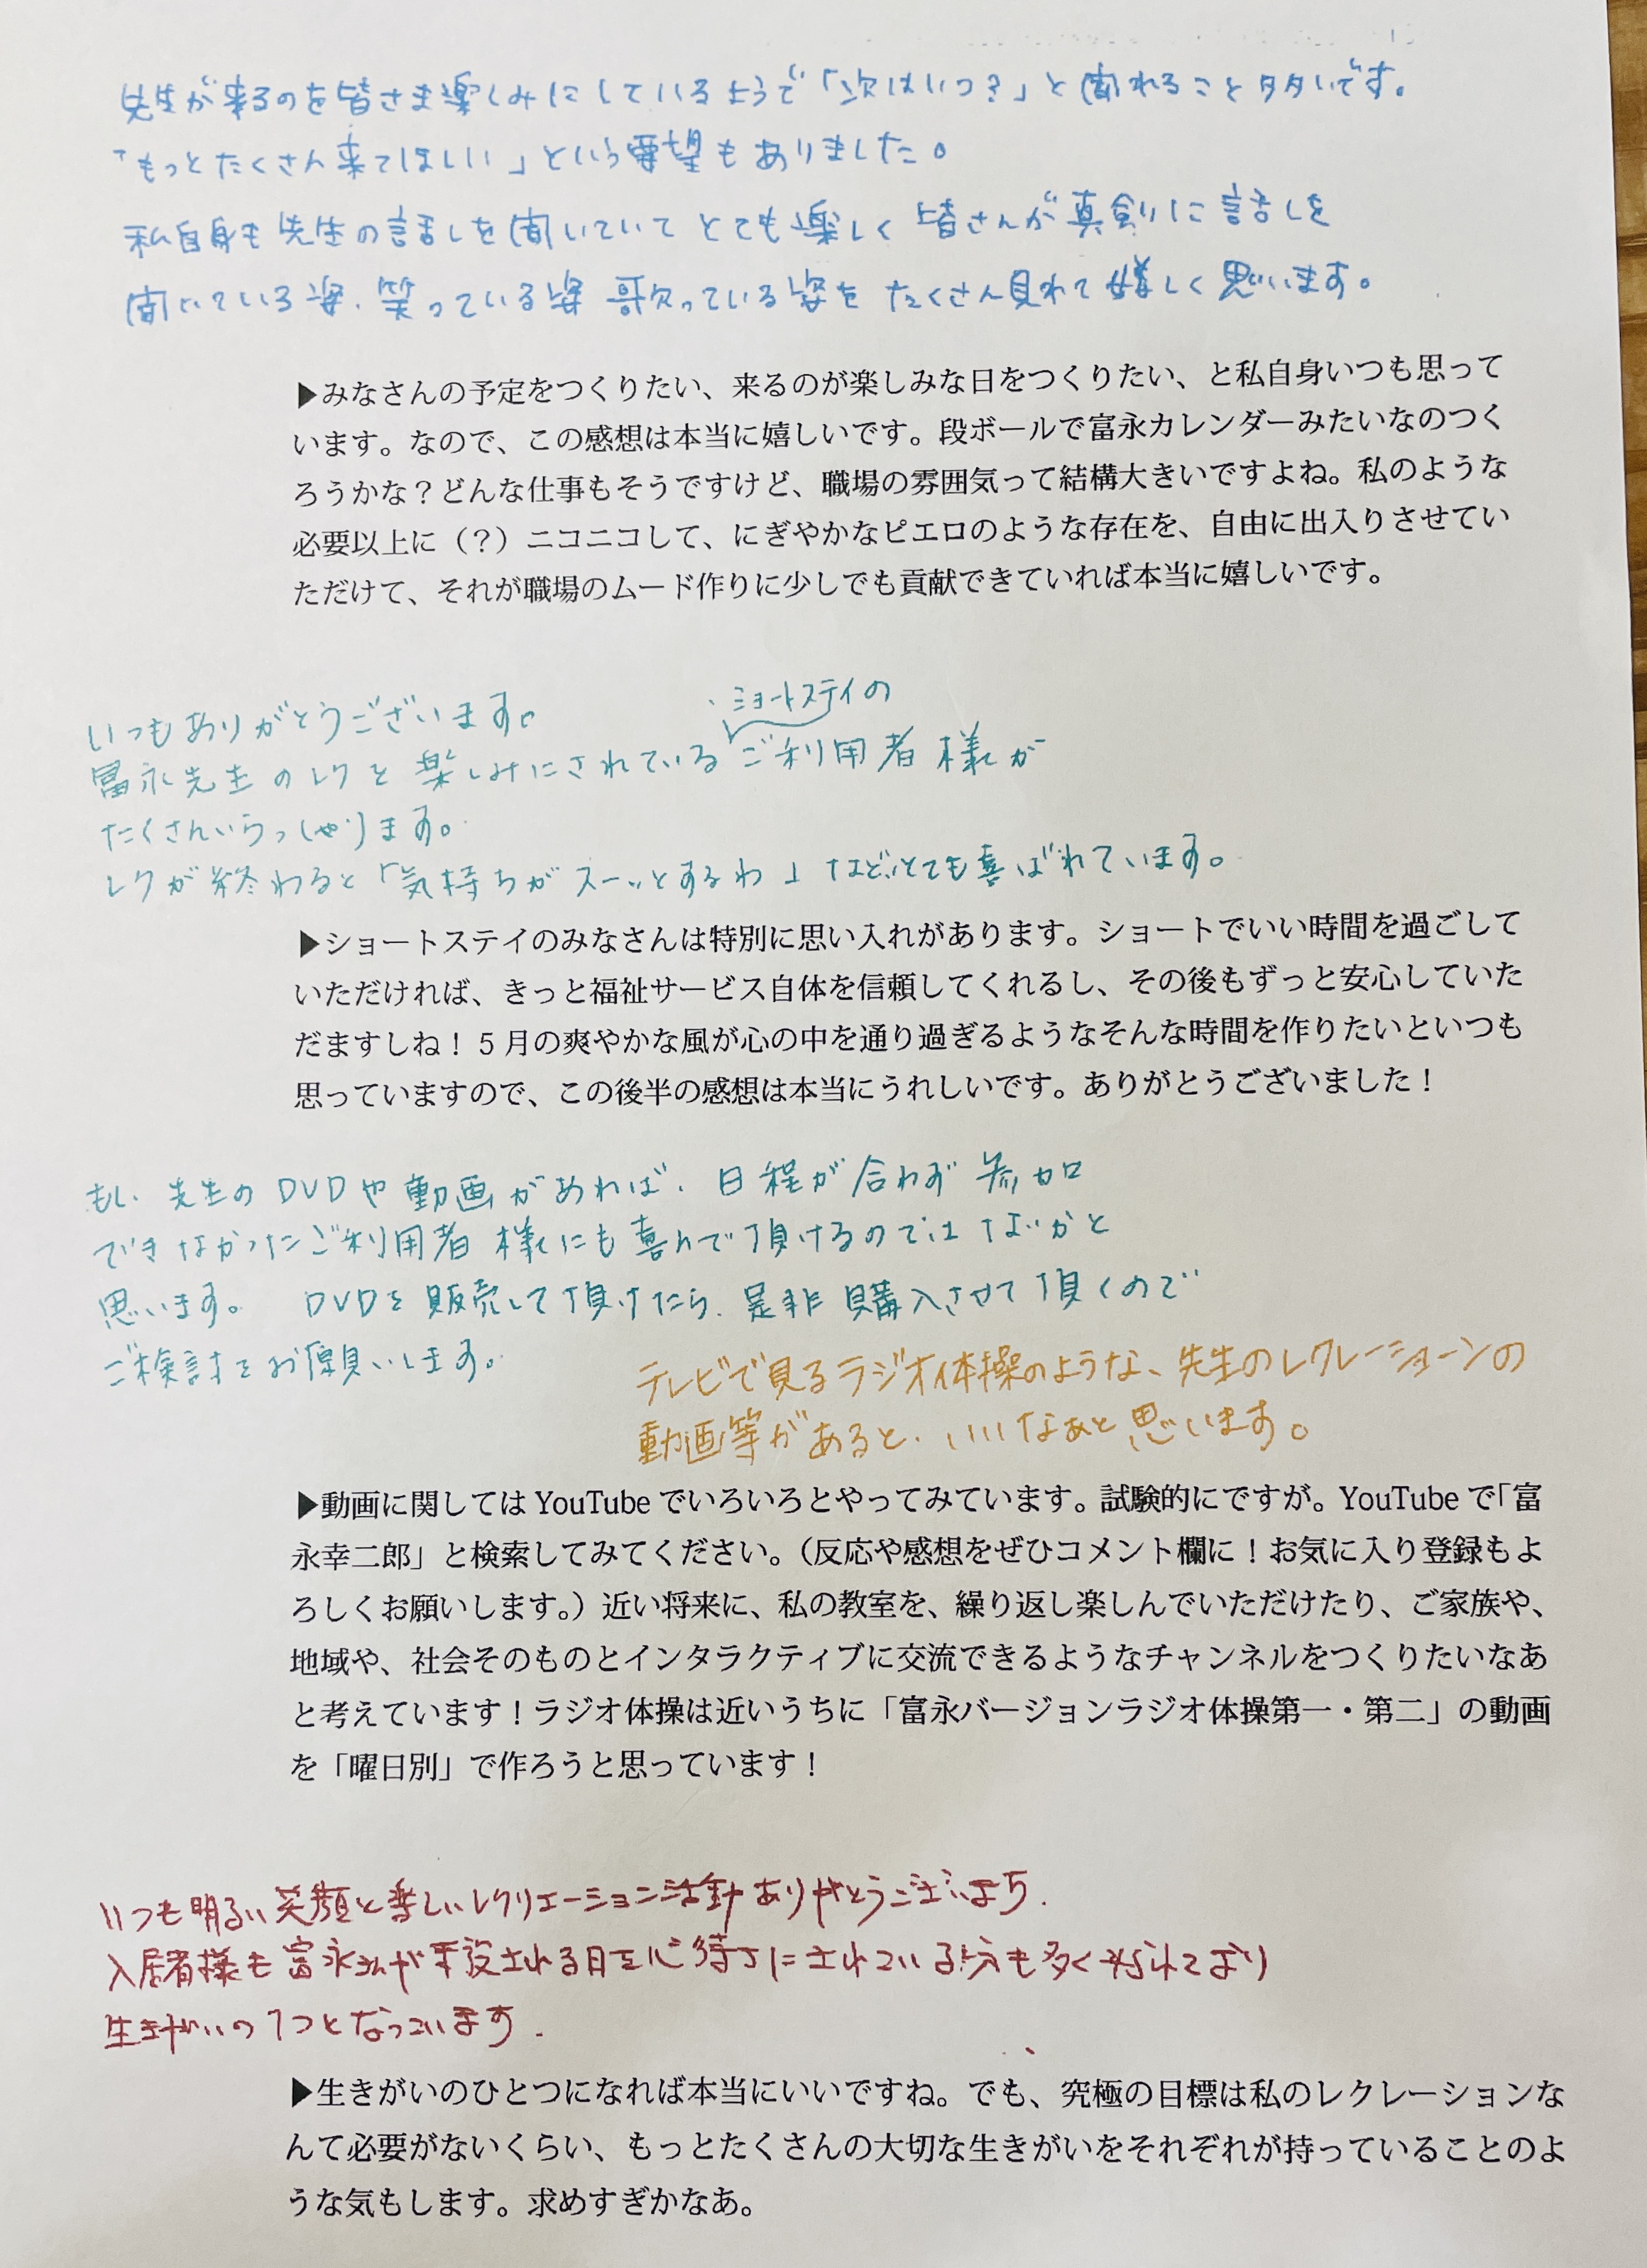 先生が来るのを皆さま楽しみにしているようで「次はいつ？」と聞れること多いです。
「もっとたくさん来てほしい」という要望もありました。
私自身も先生の話しを聞いていてとても楽しく皆さんが真剣に話しを
聞いている姿、笑っている姿 歌っている姿を たくさん見れて嬉しく思います。
▶みなさんの予定をつくりたい、来るのが楽しみな日をつくりたい、と私自身いつも思って
います。なので、この感想は本当に嬉しいです。段ボールで富永カレンダーみたいなのつく
ろうかな？どんな仕事もそうですけど、職場の雰囲気って結構大きいですよね。私のような
必要以上に（？）ニコニコして、にぎやかなピエロのような存在を、自由に出入りさせてい
ただけて、それが職場のムード作りに少しでも貢献できていれば本当に嬉しいです。
いつもありがとうございます。
ショートステイの
冨永先生のレクを楽しみにされているご利用者様が
たくさんいらっしゃります。
レクが終わると「気持ちがスーッとするわ」など、とても喜ばれています。
▶ショートステイのみなさんは特別に思い入れがあります。ショートでいい時間を過ごして
いただければ、きっと福祉サービス自体を信頼してくれるし、その後もずっと安心していた
だますしね！５月の爽やかな風が心の中を通り過ぎるようなそんな時間を作りたいといつも
思っていますので、この後半の感想は本当にうれしいです。ありがとうございました！
もし、先生のDVDや動画があれば、日程が合わず参加
できなかったご利用者様にも喜んで頂けるのではないかと
思います。 DVDを販売して頂けたら、是非購入させて頂くので
ご検討をお願いします。
テレビで見るラジオ体操のような、先生のレクレーションの
動画等があると、いいなぁと思います。
▶動画に関してはYouTubeでいろいろとやってみています。試験的にですが。YouTubeで「富
永幸二郎」と検索してみてください。（反応や感想をぜひコメント欄に！お気に入り登録もよ
ろしくお願いします。）近い将来に、私の教室を、繰り返し楽しんでいただけたり、ご家族や、
地域や、社会そのものとインタラクティブに交流できるようなチャンネルをつくりたいなあ
と考えています！ラジオ体操は近いうちに「富永バージョンラジオ体操第一・第二」の動画
を「曜日別」で作ろうと思っています！
いつも明るい笑顔と楽しいレクリエーション活動ありがとうございます.
入居者様も富永さんが来設される日を心待ちにされている方も多く おり
生きがいの1つとなっています.
▶生きがいのひとつになれば本当にいいですね。でも、究極の目標は私のレクレーションな
んて必要がないくらい、もっとたくさんの大切な生きがいをそれぞれが持っていることのよ
うな気もします。求めすぎかなあ。